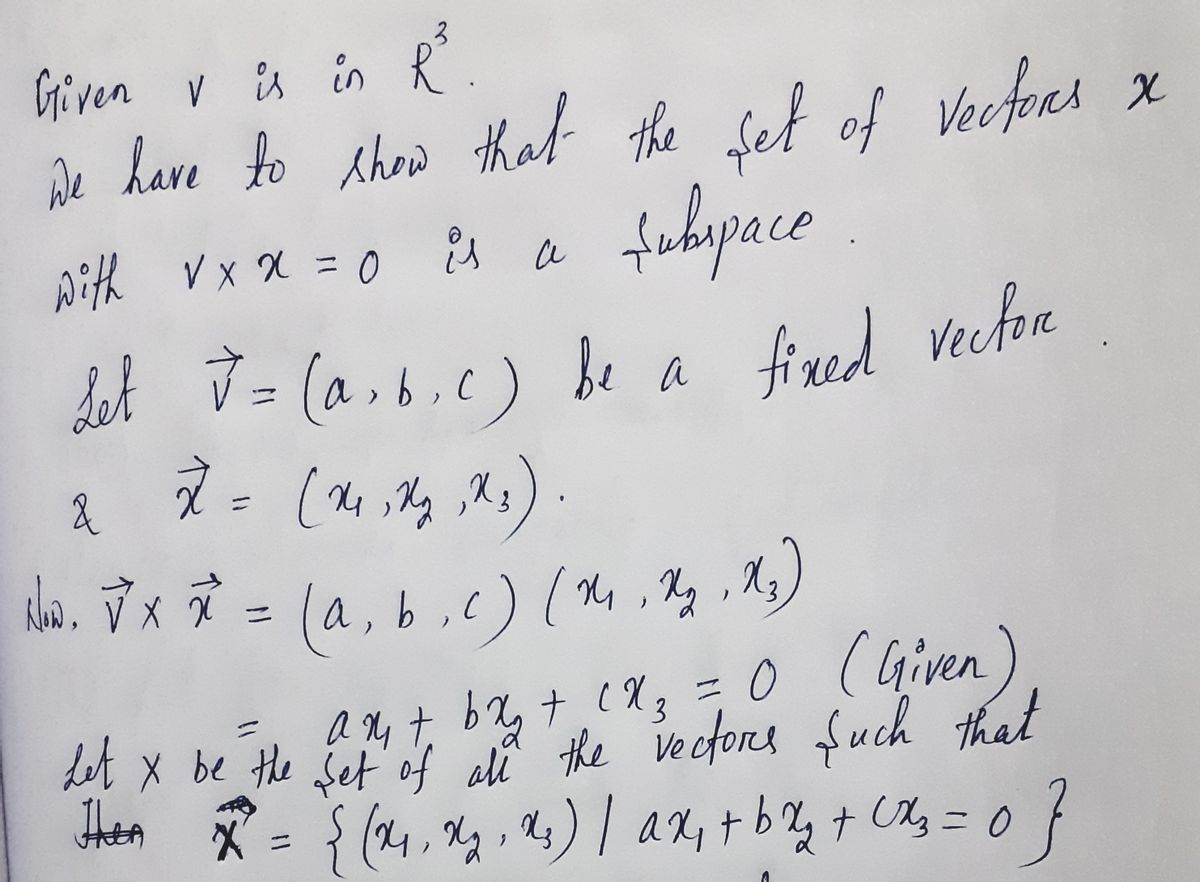 Given v is in R³.
We have to show that the set of vectors x
with v × x = 0 is a subspace.
Let v⃗ = (a, b, c) be a fixed vector.
& x⃗ = (x₁, x₂, x₃).
Now, v⃗ × x⃗ = (a, b, c) (x₁, x₂, x₃)
= ax₁ + bx₂ + cx₃ = 0 (Given)
Let X be the set of all the vectors such that
Then X = {(x₁, x₂, x₃) | ax₁ + bx₂ + cx₃ = 0}